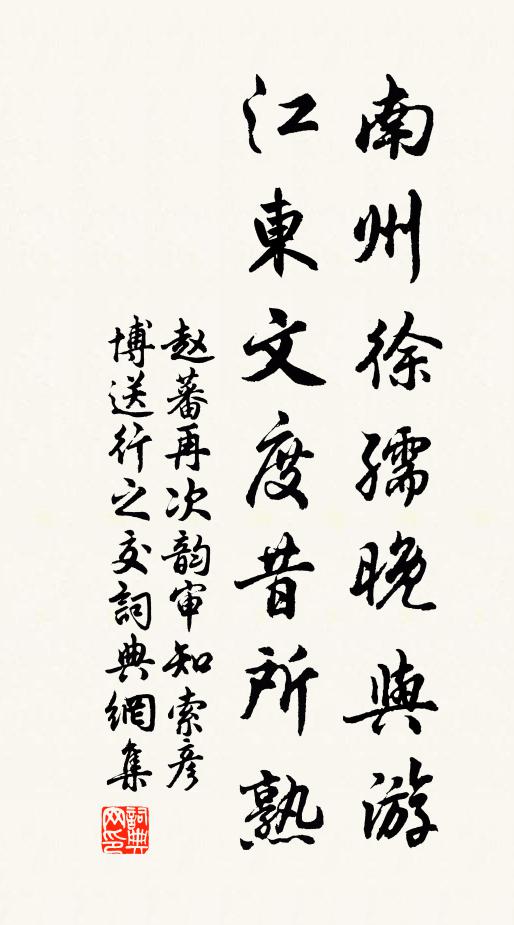 南州徐孺晚與游
江東文度昔所熟
赵蕃再次韵审知索彦
博送行之交詞典網集
詞典網印